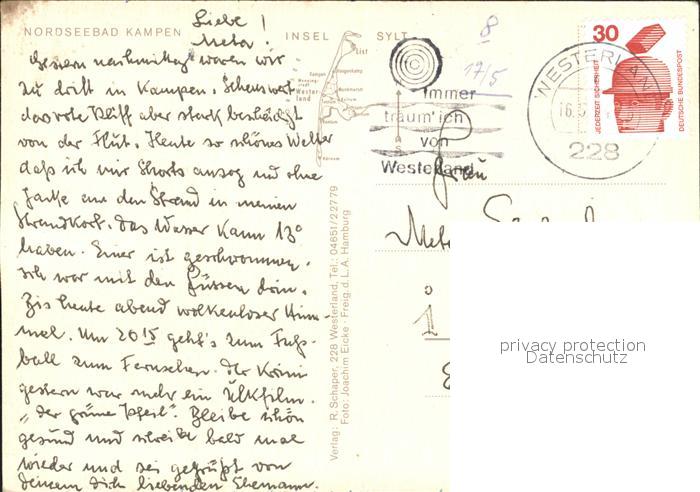 NORDSEEBAD KAMPEN
INSEL SYLT
Liebe !
Meta.
Gestern nachmittag waren wir
zu dritt in Kampen. Sehenswert
das rote Kliff aber stark beschädigt
von der Flut. Heute so schönes Wetter
daß ich mir Shorts anzog und ohne
Jacke an den Strand in meinen
Strandkorb. Das Wasser kann 13°
haben. Einer ist geschwommen.
Ich war mit den Füssen drin.
Bis heute abend wolkenloser Him-
mel. Um 20 15 geht's zum Fuß-
ball zum Fernsehen. Der Krimi
gestern war mehr ein Ulkfilm.
"der grüne Pfeil". Bleibe schön
gesund und schreibe bald mal
wieder und sei gegrüßt von
deinem dich liebenden Ehemann.
List
Kampen
Westerland
8
17/5
Immer
träum' ich
von
Westerland
WESTERLAND
16.
228
30
JEDERZEIT SICHERHEIT
DEUTSCHE BUNDESPOST
Frau
Meta
Verlag: R. Schaper, 228 Westerland, Tel.: 04651/22779
Foto: Joachim Eicke · Freig. d. L. A. Hamburg
privacy protection
Datenschutz